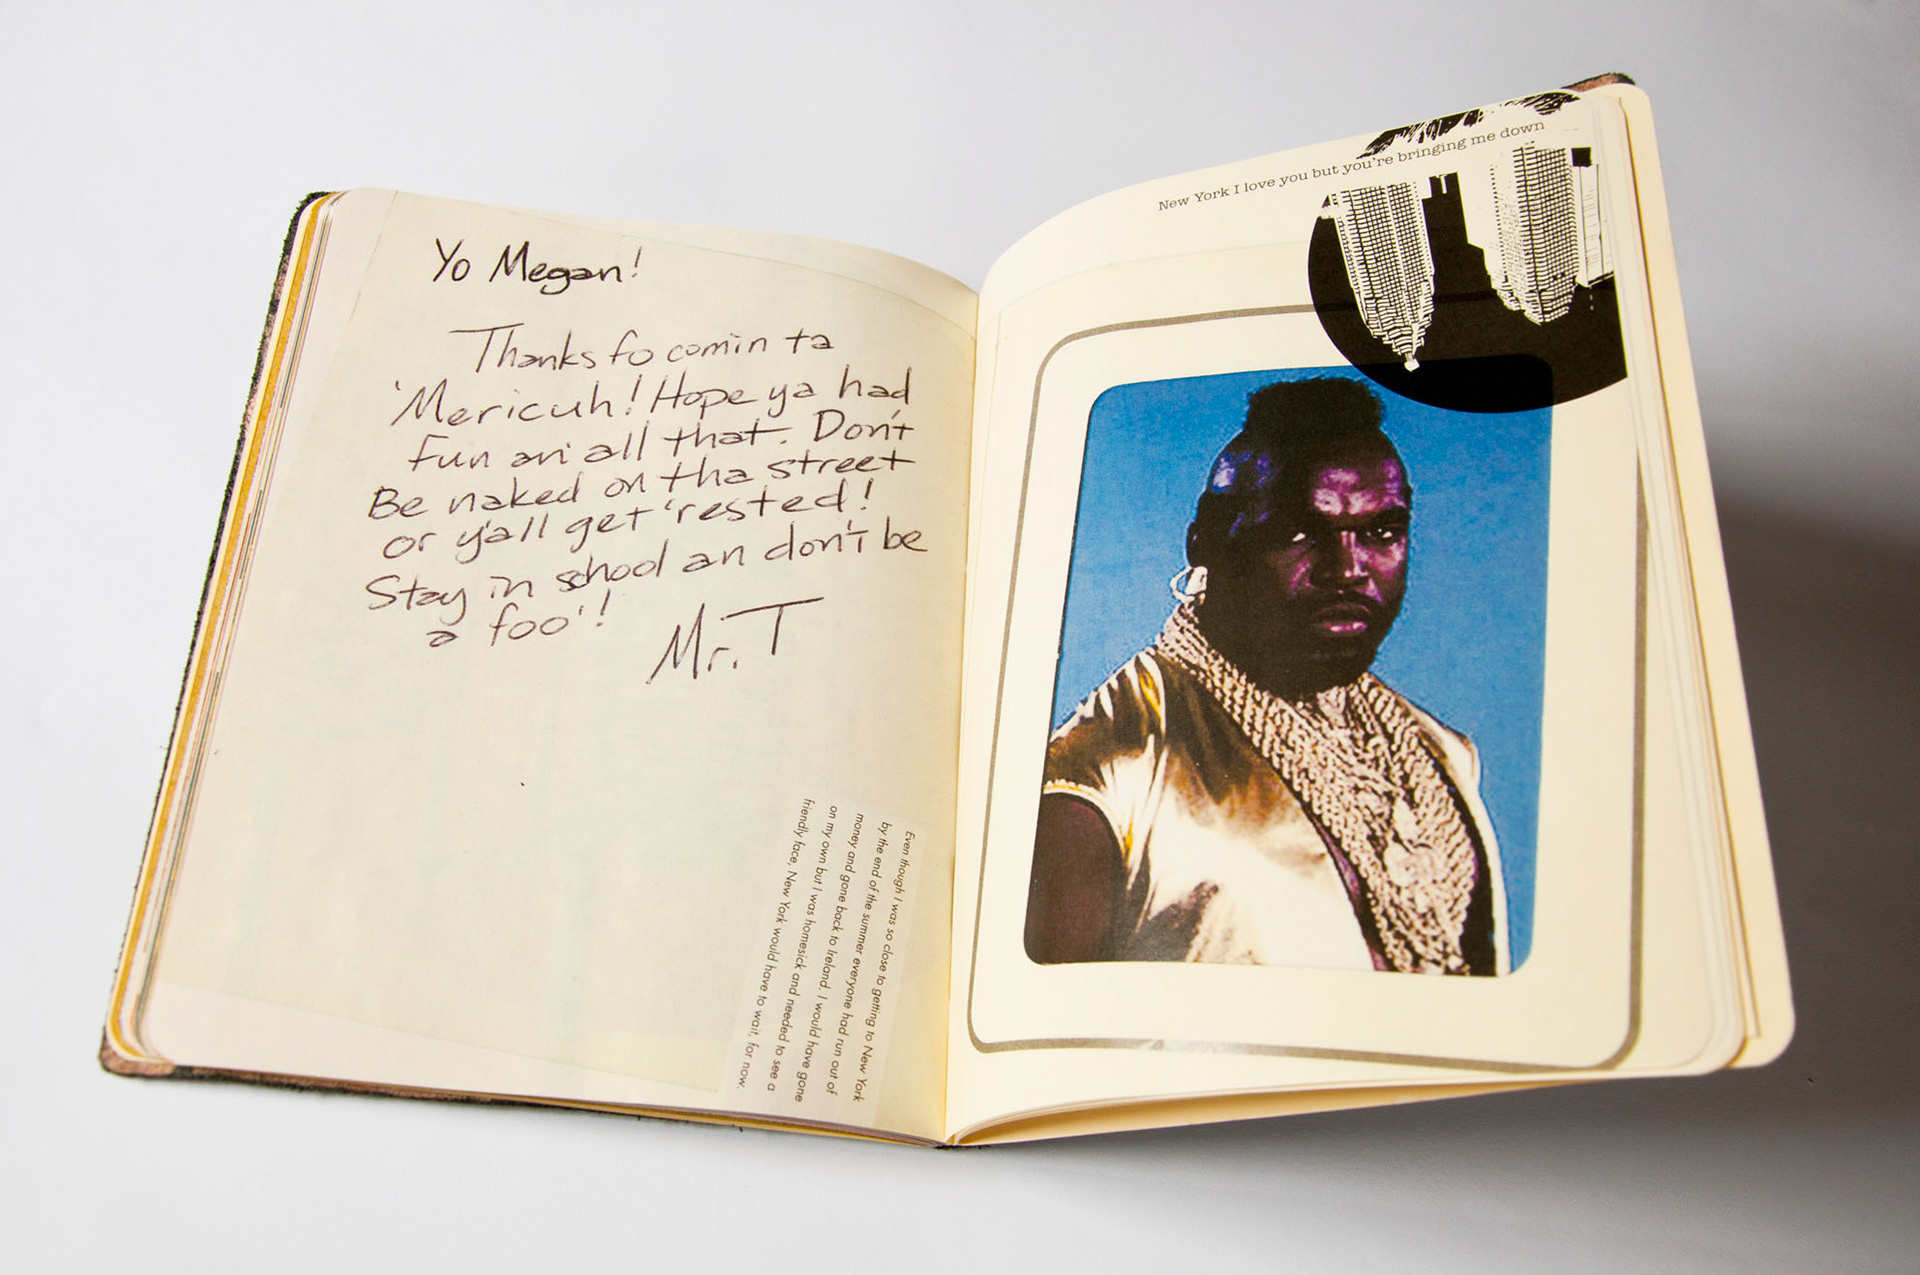 Yo Megan!
Thanks fo comin ta
'Mericuh! Hope ya had
fun an' all that. Don't
Be naked on tha street
or y'all get 'rested!
Stay in school an don't be
a foo'!
Mr. T
Even though I was so close to getting to New York
by the end of the summer everyone had run out of
money and gone back to Ireland. I would have gone
on my own but I was homesick and needed to see a
friendly face, New York would have to wait, for now.
New York I love you but you're bringing me down